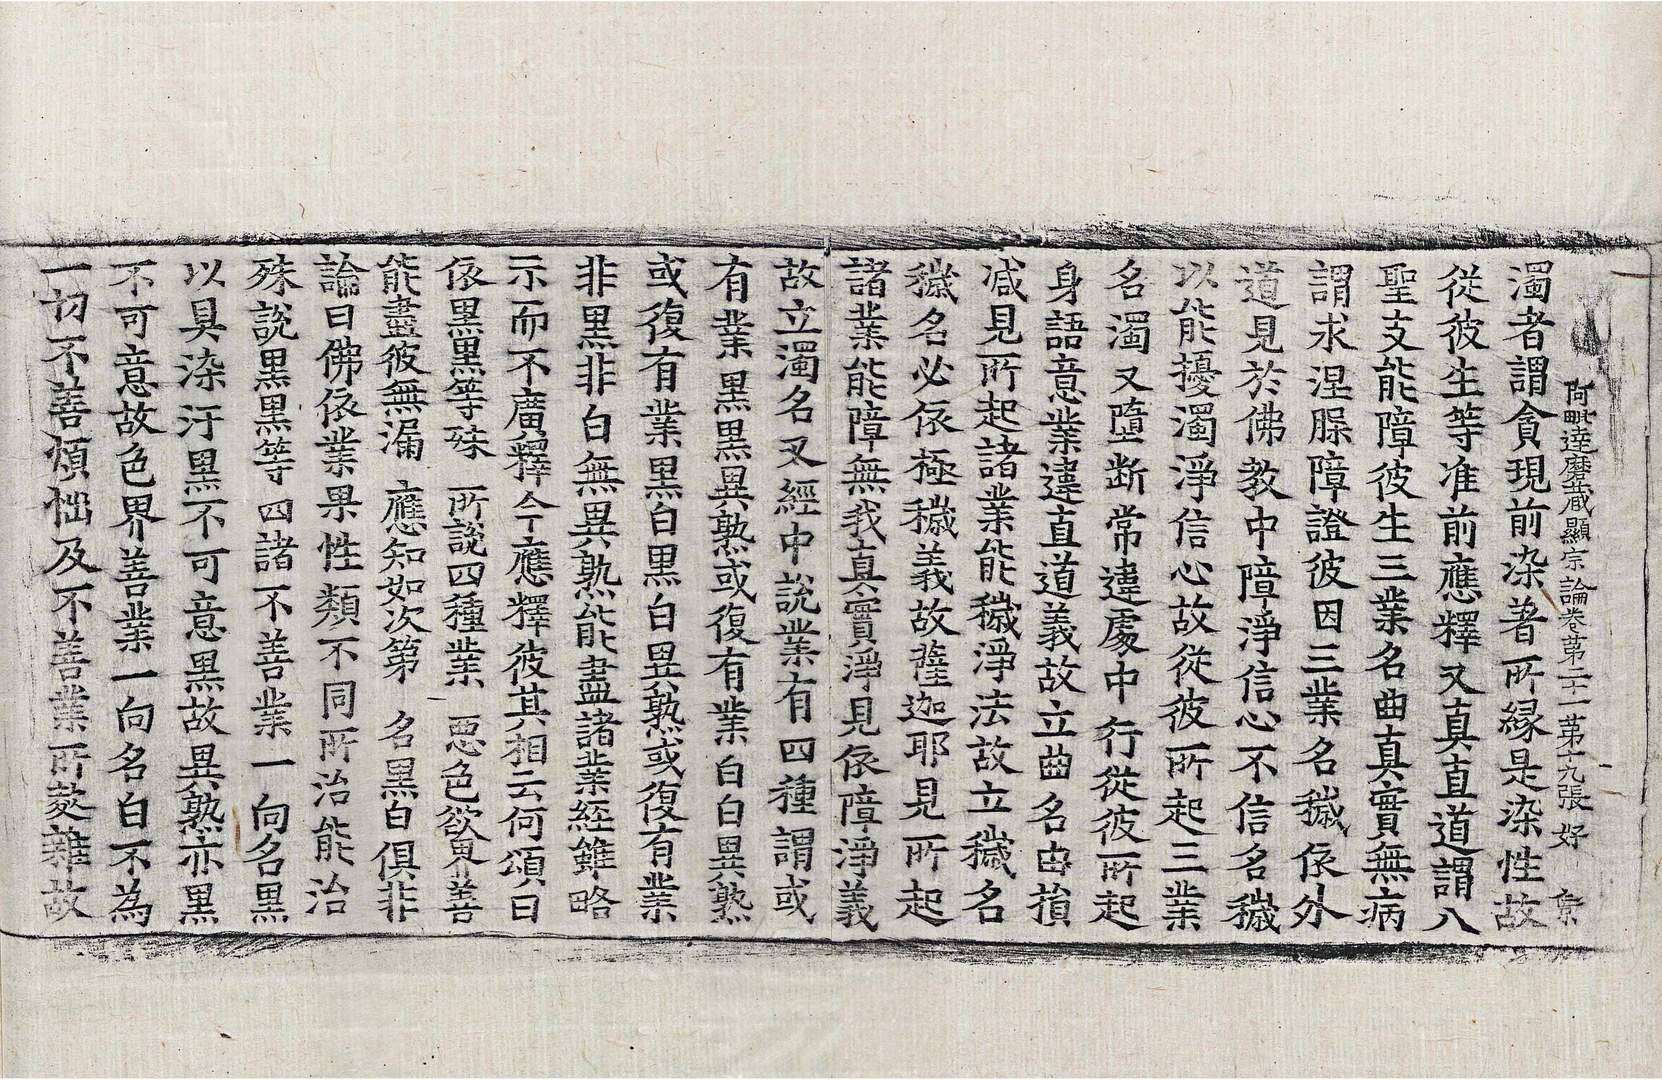 阿毗達磨藏顯宗論卷第二十一 第十九張 好
濁者謂貪現前染著所緣是染性故
從彼生等准前應釋又真直道謂八
聖支能障彼生三業名曲真實無病
謂求涅脲障證彼因三業名穢依外
道見於佛教中障淨信心不信名穢
以能擾濁淨信心故從彼所起三業
名濁又墮斷常違處中行從彼所起
身語意業違直道義故立曲名由損
减見所起諸業能穢淨法故立穢名
穢名必依極穢義故薩迦耶見所起
諸業能障無我真實淨見依障淨義
故立濁名又經中說業有四種謂或
有業黑黑異熟或復有業白白異熟
或復有業黑白黑白異熟或復有業
非黑非白無異熟能盡諸業經雖略
示而不廣釋今應釋彼其相云何頌曰
依黑黑等殊 所說四種業 惡色欲界善
能盡彼無漏 應知如次第 名黑白俱非
論曰佛依業果性類不同所治能治
殊說黑黑等四諸不善業一向名黑
以具染汙黑不可意黑故異熟亦黑
不可意故色界善業一向名白不為
一切不善煩惱及不善業所蔆雜故